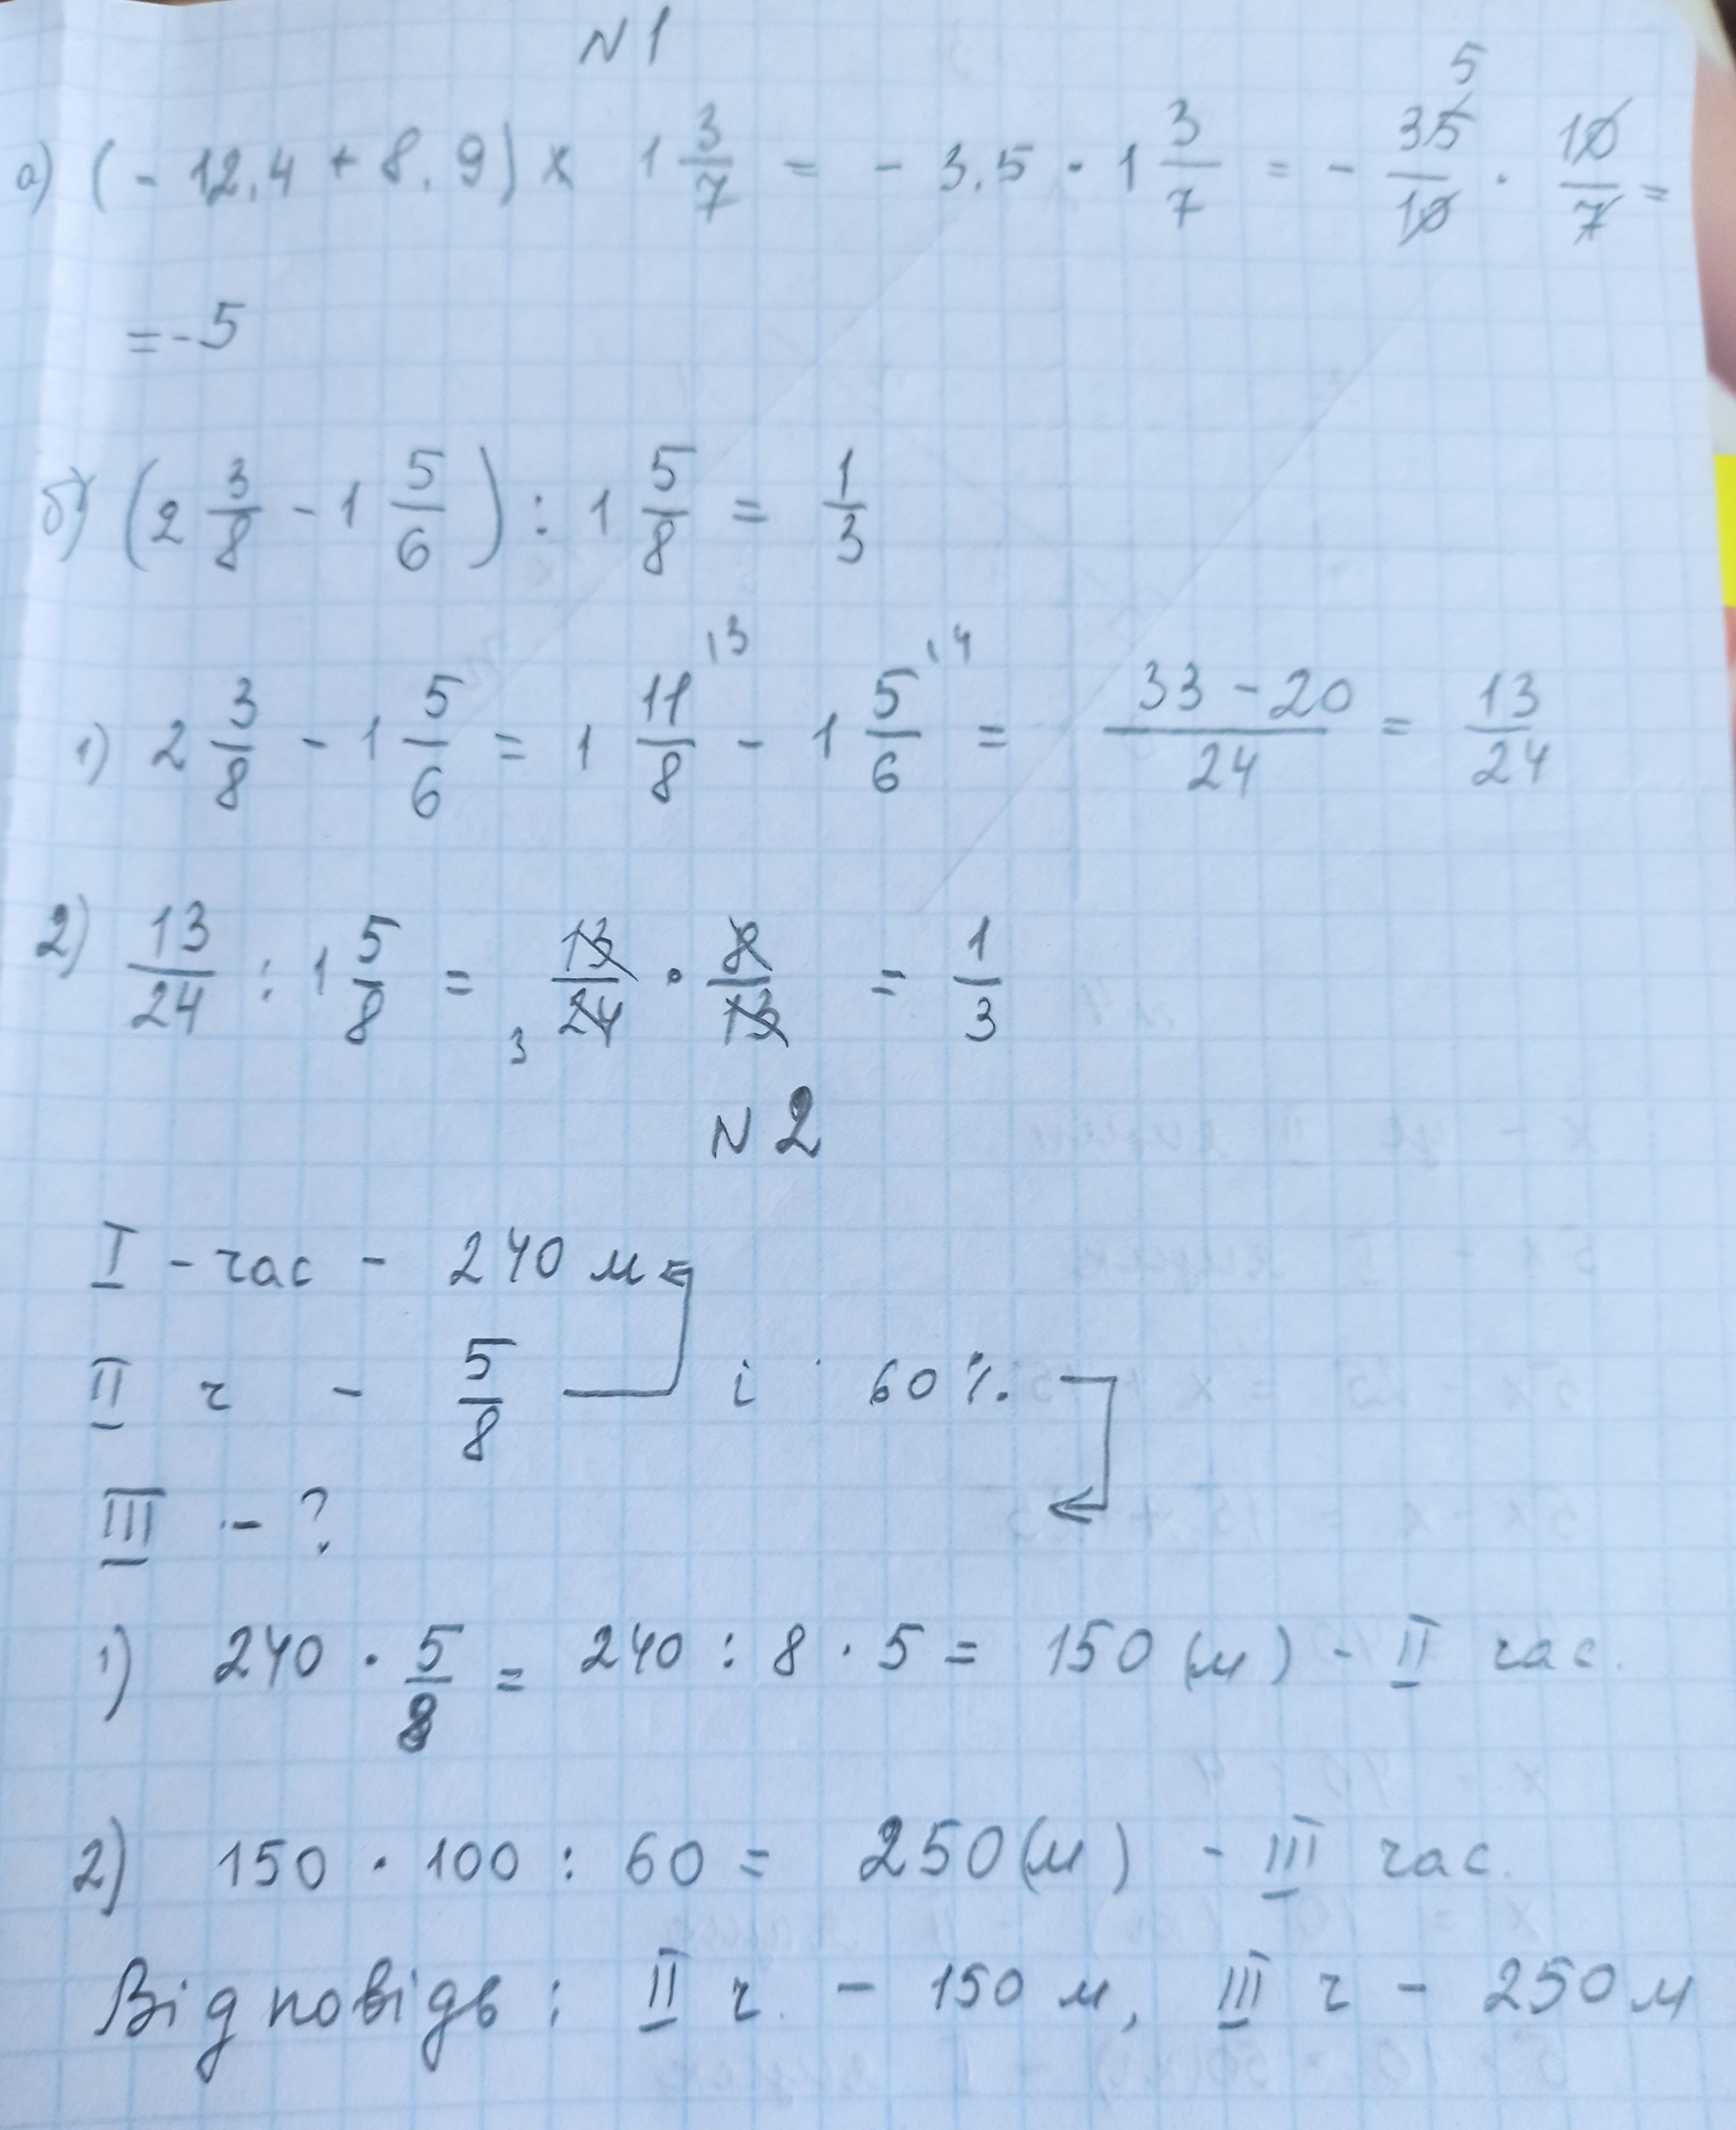 N 1
а) (- 12.4 + 8.9) × 1 3/7 = - 3.5 · 1 3/7 = - 35/10 · 10/7 =
5
= - 5
б) (2 3/8 - 1 5/6) : 1 5/8 = 1/3
1) 2 3/8 - 1 5/6 = 1 11/8 ı3 - 1 5/6 ı4 = 33 - 20/24 = 13/24
2) 13/24 : 1 5/8 = 13/24 · 8/13 = 1/3
3
N 2
I - час - 240 м
II ч - 5/8 і 60 %
III - ?
1) 240 · 5/8 = 240 : 8 · 5 = 150 (м) - II час.
2) 150 · 100 : 60 = 250 (м) - III час.
Відповідь : II ч. - 150 м, III ч - 250 м